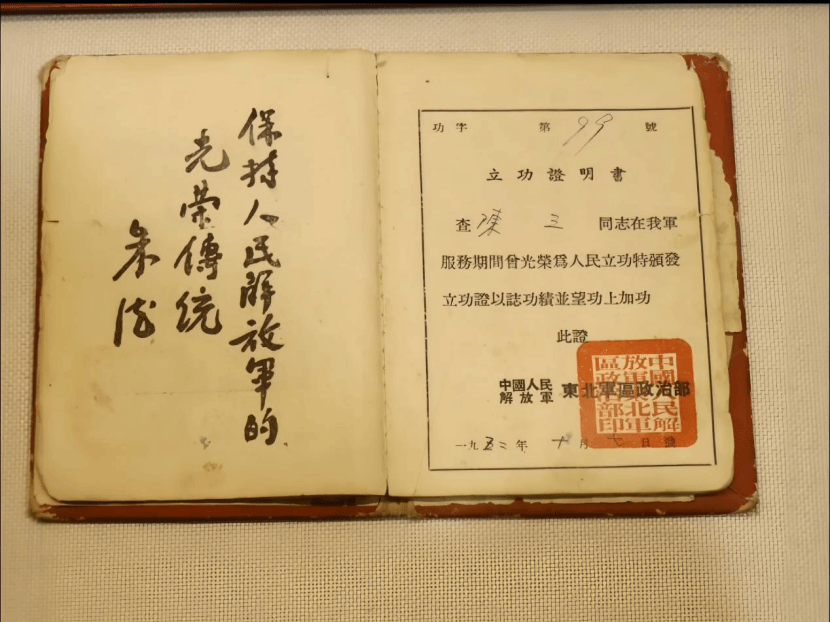 保持人民解放軍的
光榮傳統
朱德
功字 第 99 號
立功證明書
查 陳三 同志在我軍
服務期間曾光榮爲人民立功特頒發
立功證以誌功績並望功上加功
此證
中國人民
解放軍 東北軍區政治部
一九五二年十月七日
中國人民解
放軍東北軍
區政治部印